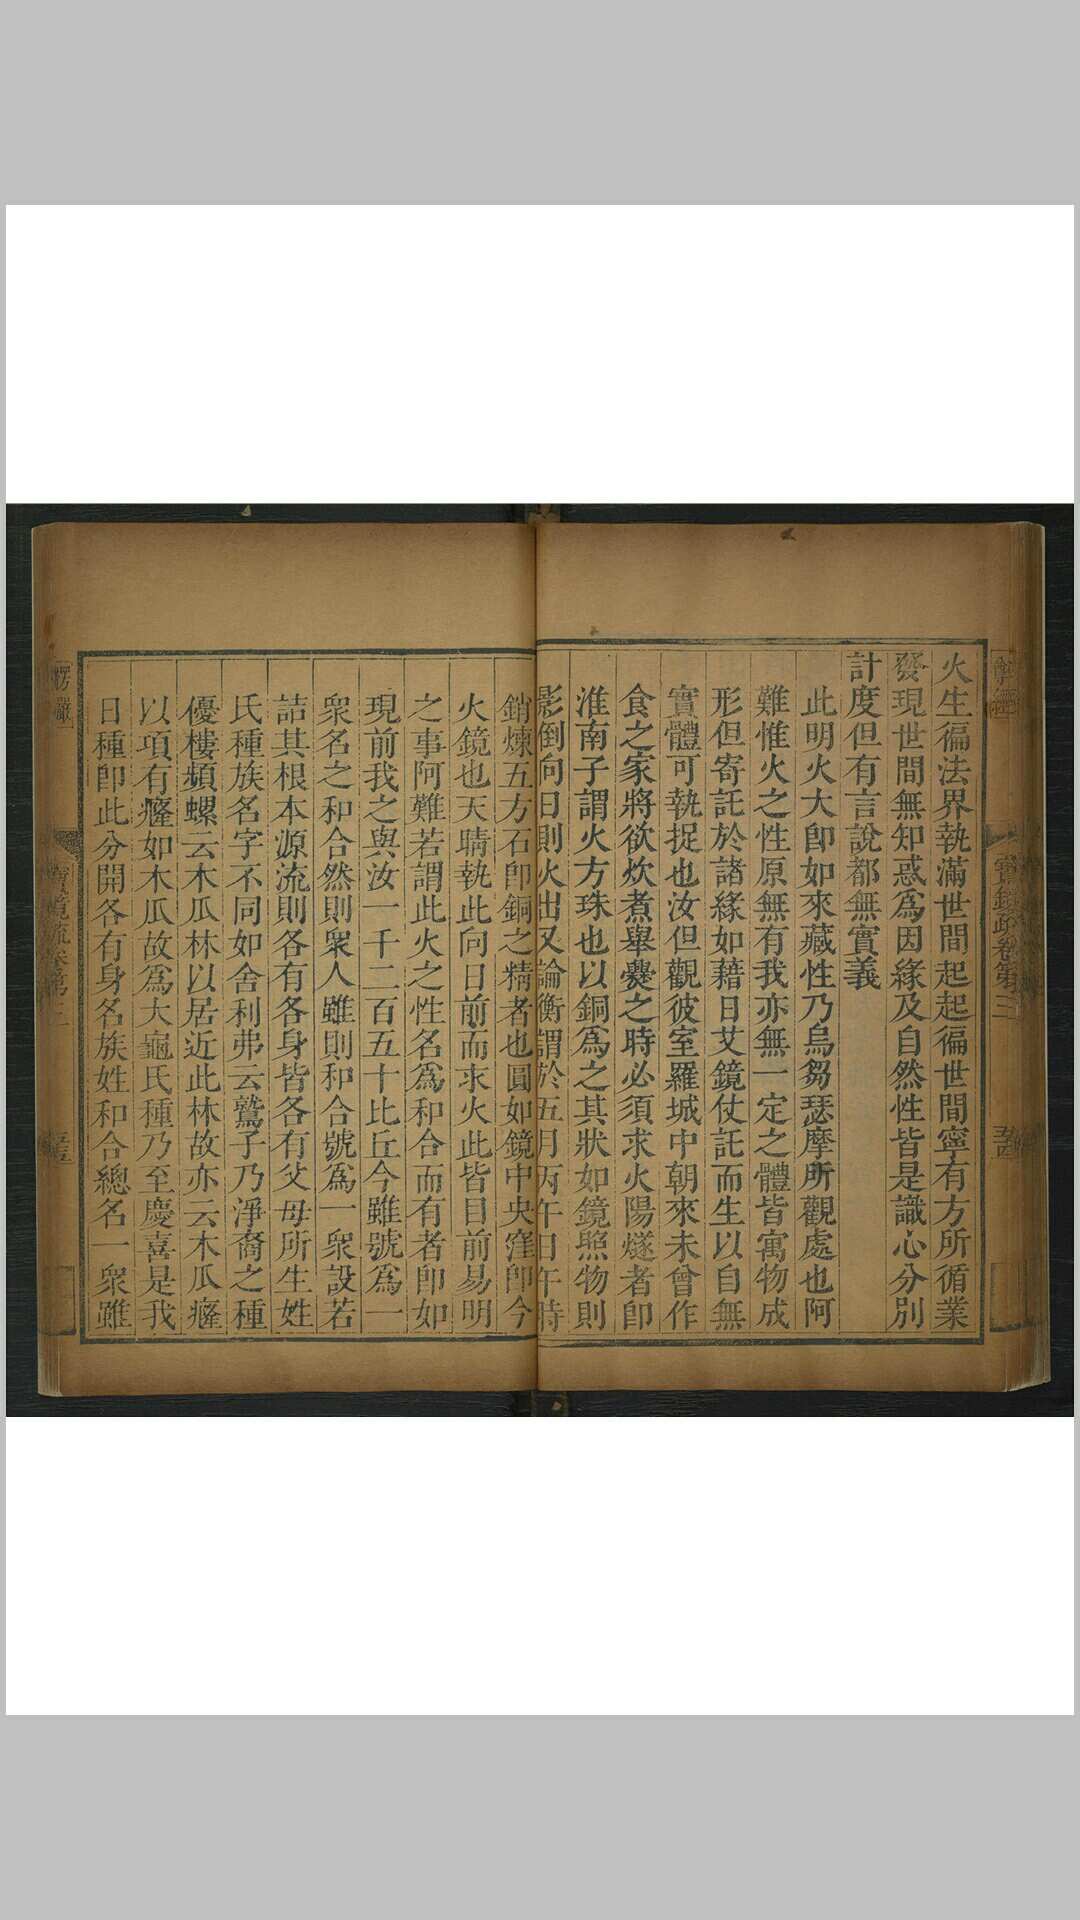 火生徧法界執滿世間起起徧世間寧有方所循業
發現世間無知惑爲因緣及自然性皆是識心分別
計度但有言說都無實義
此明火大卽如來藏性乃烏芻瑟摩所觀處也阿
難惟火之性原無有我亦無一定之體皆寓物成
形但寄託於諸緣如藉日艾鏡仗託而生以自無
實體可執捉也汝但觀彼室羅城中朝來未曾作
食之家將欲炊煮舉爨之時必須求火陽燧者卽
淮南子謂火方珠也以銅爲之其狀如鏡照物則
影倒向日則火出又論衡謂於五月丙午日午時
銷煉五方石卽銅之精者也圓如鏡中央窪卽今
火鏡也天晴執此向日前而求火此皆目前易明
之事阿難若謂此火之性名爲和合而有者卽如
現前我之與汝一千二百五十比丘今雖號爲一
衆名之和合然則衆人雖則和合號爲一衆設若
詰其根本源流則各有各身皆各有父母所生姓
氏種族名字不同如舍利弗云鷲子乃淨裔之種
優樓頻螺云木瓜林以居近此林故亦云木瓜癃
以項有癃如木瓜故爲大龜氏種乃至慶喜是我
日種卽此分開各有身名族姓和合總名一衆雖
楞嚴
寶鏡疏卷第三
五五
寶鏡疏卷第三
五四